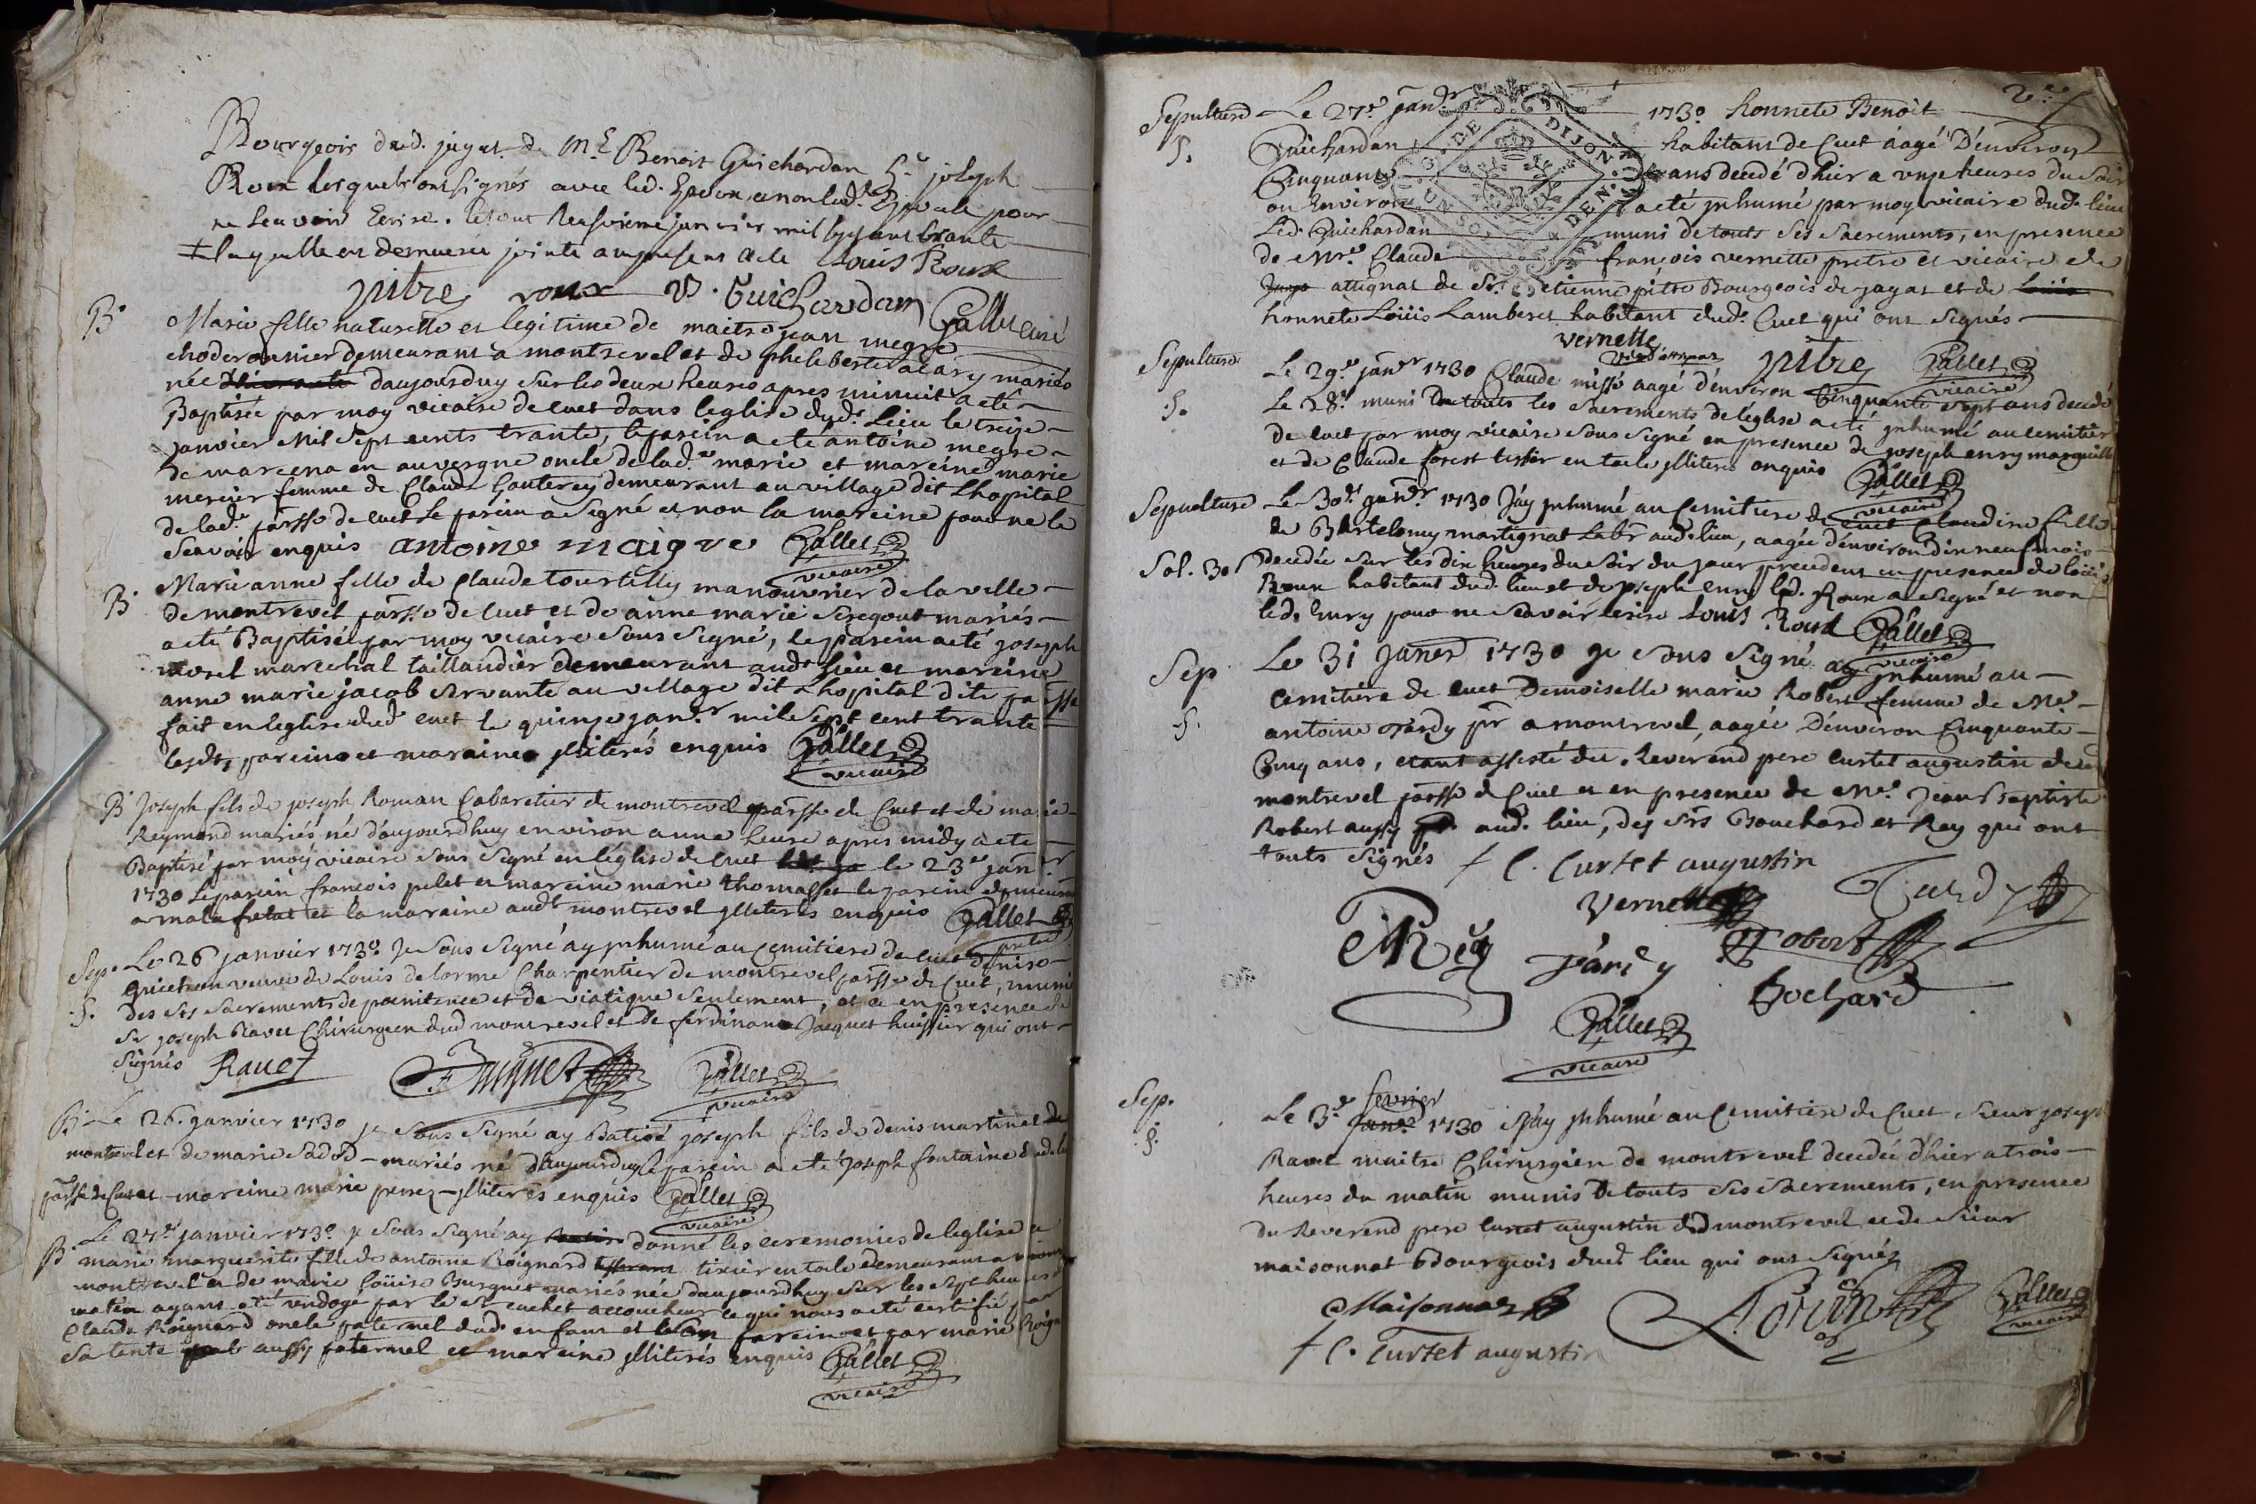 Bourgeois dud. jayat. de Mr. Benoit Guichardan Sr. joseph
Roux lesquels ont signés avec led. Epoux, et non lad. Epouse pour
ne scavoir Ecrire. le tout ce janvier mil sept cent trante
laquelle est demeurée jointe au present acte Louis Roux
pitre roux B. Guichardan Gallet curé
B. Marie fille naturelle et legitime de maitre jean megre
choderonnier demeurant a montrevel et de philiberte mariés
née daujourduy sur les deux heures apres minuit a eté
Baptisée par moy vicaire de cuet dans leglise dud. Lieu le treize
janvier Mil sept cents trante, le parein a eté antoine megre
de marcena en auvergne oncle de lad. marie et mareine marie
mercier femme de Claude Gauterey demeurant au village dit Lhopital
de lad. parsse de cuet Le parein a signé et non la mareine pour ne le
scavoir enquis antoine maigre Gallet
vicaire
B. Marie anne fille de Claude tourtelly manouvrier de la ville
de montrevel parsse de cuet et de anne marie mariés
a eté Baptisée par moy vicaire sous signé, le parein a eté joseph
morel marechal taillandier demeurant aud. lieu et mareine
anne marie jacob servante au village dit Lhopital dite parsse
fait en leglise dud. cuet le quinze janr. mil sept cent trante
lesdts. pareins et maraines illiterés enquis Gallet
vicaire
B. Joseph fils de joseph Roman Cabaretier de montrevel parsse de Cuet et de marie
Reymond mariés né d'aujourdhuy environ a une heure apres midy a eté
Baptisé par moy vicaire sous signé en léglise de Cuet le 23e janr
1730 Le parein francois pelet et mareine marie thomasset le parein demeurant
a malafretat et la maraine audt montrevel illiterés enquis Gallet
Sep. Le 26 janvier 1730 Je sous signé ay inhumé au Cemitiere de cuet
S. veuve de Louis delorme Charpentier de montrevel parsse de Cuet, muni
des ses sacrements de poenitence et de viatique seulement, et ce en presence de
Sr joseph Ravet Chirurgien dud montrevel et de ferdinand Jacquet huissier qui ont
signés Ravet Gallet
vicaire
B. Le 26. janvier 1730 je sous signé ay Batisé joseph fils de denis martinet de
montrevel et de marie mariés né daujourdhuy le parein a eté joseph fontaine dud. lieu
parsse de Cuet et mareine marie perrez illiterés enquis Gallet
vicaire
B. Le 27e janvier 1730 je sous signé ay donné les ceremonies de leglise a
marie marguerite fille de antoine Roignard tixier en toile demeurant a
montrevel et de marie Louise Burguet mariés née daujourdhuy sur les sept heures du
matin ayant eté ondogé par le Sr cachet accoucheur ce qui nous a eté certifié par
Claude Roignard oncle paternel dud. enfant et parein et par marie
sa tente aussy paternel et mareine illiterés enquis Gallet
vicaire
2e
Sepulture Le 27e janvr 1730 honnete Benoit
S. Guichardan habitant de Cuet aagé D'environ
Cinquante ans decedé d'hier a unze heures du soir
ou Environ a eté inhumé par moy vicaire dud. lieu
Led. Guichardan muni de touts ses sacrements, en presence
de Mre. Claude françois vernette pretre et vicaire de
attignat de Sr. etienne pitre Bourgeois de jayat et de
honnete Loüis Lamberet habitant dud. Cuet qui ont signés
vernette pitre Gallet
vicaire
GN. DE DIJON
Sepulture Le 29e janvr 1730 Claude misse aagé d'environ Cinquante sept ans decedé
S. Le 28e muni De touts les sacrements de léglise a eté inhumé au cemitiere
de cuet par moy vicaire sous signé en presence de joseph enry
et de Claude forest tissier en toile illiterés enquis Gallet
vicaire
Sepulture Le 30e janvr 1730 J'ay inhumé au Cemitiere de cuet Claudine fille
de Bartelemy martignat Labr. aud. lieu, aagée d'environ dix neuf mois
Sol. 30 decedée sur les dix heures du soir du jour precedent en presence de loüis
Roux habitant dud. lieu et de joseph enry led. Roux a signé et non
led. Enry pour ne scavoir ecrire Louis Roux Gallet
vicaire
Sep Le 31 Janvr 1730 je sous signé ay inhumé au
S. cemitiere de cuet Demoiselle marie Robert femme de Me.
antoine Tardy pr a montrevel, aagée D'environ Cinquante
Cinq ans, etant assisté du Reverend pere curtet augustin de
montrevel parsse de Cuet et en presence de Me. Jean Baptiste
Robert aussy aud. lieu, des Srs Bouchard et Rey qui ont
touts signés f C. Curtet augustin
vernette Tardy
Rey Robert
Bochard
Gallet
vicaire
Sep. fevrier
S. Le 3e janr. 1730 J'ay inhumé au Cemitiere de Cuet sieur joseph
Ravet maitre Chirurgien de montrevel decedé d'hier a trois
heures du matin munis De touts ses sacrements, en presence
du Reverend pere curtet augustin dud montrevel et de sieur
maisonnat Bourgeois dud. lieu qui ont signés
Maisonnat Gallet
vicaire
f C. Curtet augustin